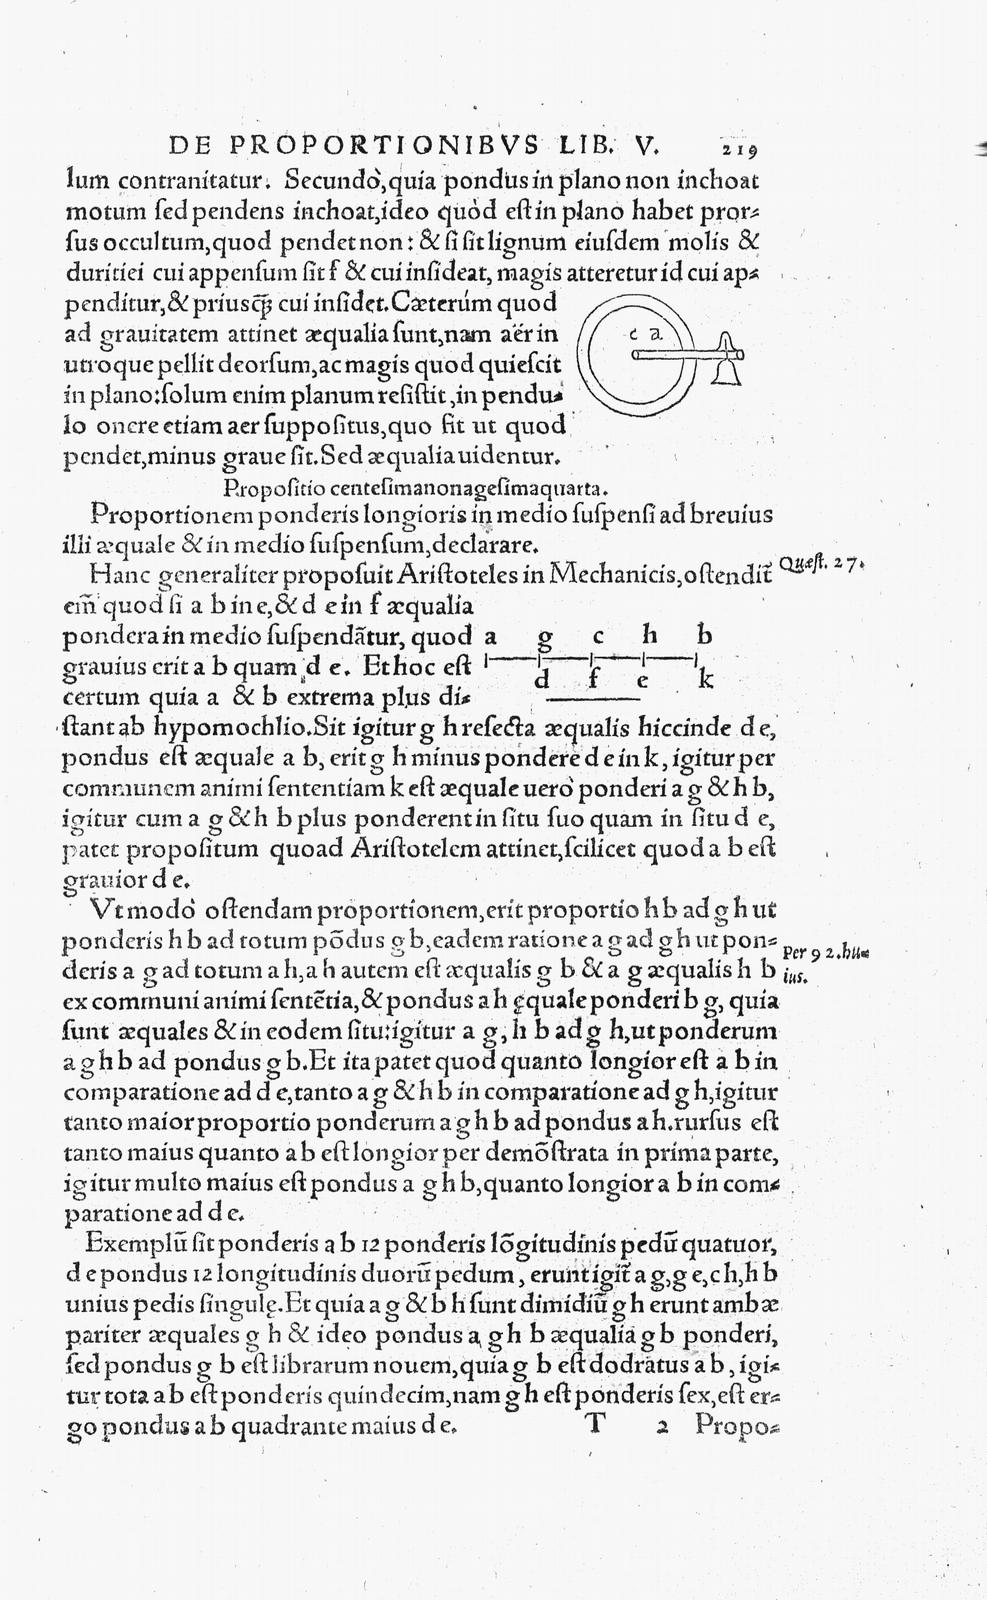 DE PROPORTIONIBVS LIB. V. 219
lum contranitatur. Secundò, quia pondus in plano non inchoat
motum sed pendens inchoat, ideo quòd est in plano habet pror-
sus occultum, quod pendet non: & si sit lignum eiusdem molis &
duritiei cui appensum sit f & cui insideat, magis attereretur id cui ap-
penditur, & priusq̃ȝ cui insidet. Cæterúm quod
ad grauitatem attinet æqualia sunt, nam aër in
utroque pellit deorsum, ac magis quod quiescit
in plano: solum enim planum resistit, in pendu-
lo onere etiam aer suppositus, quo fit ut quod
pendet, minus graue sit. Sed æqualia uidentur.
c a
Propositio centesimanonagesimaquarta.
Proportionem ponderis longioris in medio suspensi ad breuius
illi æquale & in medio suspensum, declarare.
Hanc generaliter proposuit Aristoteles in Mechanicis, ostendit̃
Quæst. 27.
em̃ quod si a b in e, & d e in f æqualia
pondera in medio suspendãtur, quod
grauius erit a b quam d e. Et hoc est
certum quia a & b extrema plus di-
a g c h b
d f e k
stant ab hypomochlio. Sit igitur g h resecta æqualis hiccinde d e,
pondus est æquale a b, erit g h minus pondere d e in k, igitur per
communem animi sententiam k est æquale uerò ponderi a g & h b,
igitur cum a g & h b plus ponderent in situ suo quam in situ d e,
patet propositum quoad Aristotelem attinet, scilicet quod a b est
grauior d e.
Vt modò ostendam proportionem, erit proportio h b ad g h ut
ponderis h b ad totum põdus g b, eadem ratione a g ad g h ut pon-
Per 92. hu-
ius.
deris a g ad totum a h, a h autem est æqualis g b & a g æqualis h b
ex communi animi sentẽtia, & pondus a h ęquale ponderi b g, quia
sunt æquales & in eodem situ: igitur a g, h b ad g h, ut ponderum
a g h b ad pondus g b. Et ita patet quod quanto longior est a b in
comparatione ad d e, tanto a g & h b in comparatione ad g h, igitur
tanto maior proportio ponderum a g h b ad pondus a h. rursus est
tanto maius quanto a b est longior per demõstrata in prima parte,
igitur multo maius est pondus a g h b, quanto longior a b in com-
paratione ad d e.
Exemplũ sit ponderis a b 12 ponderis lõgitudinis pedũ quatuor,
d e pondus 12 longitudinis duorũ pedum, erunt igit̃ a g, g e, c h, h b
unius pedis singulę. Et quia a g & b h sunt dimidiũ g h erunt ambæ
pariter æquales g h & ideo pondus a g h b æqualia g b ponderi,
sed pondus g b est librarum nouem, quia g b est dodratus a b, igi-
tur tota a b est ponderis quindecim, nam g h est ponderis sex, est er-
go pondus a b quadrante maius d e. T 2 Propo-